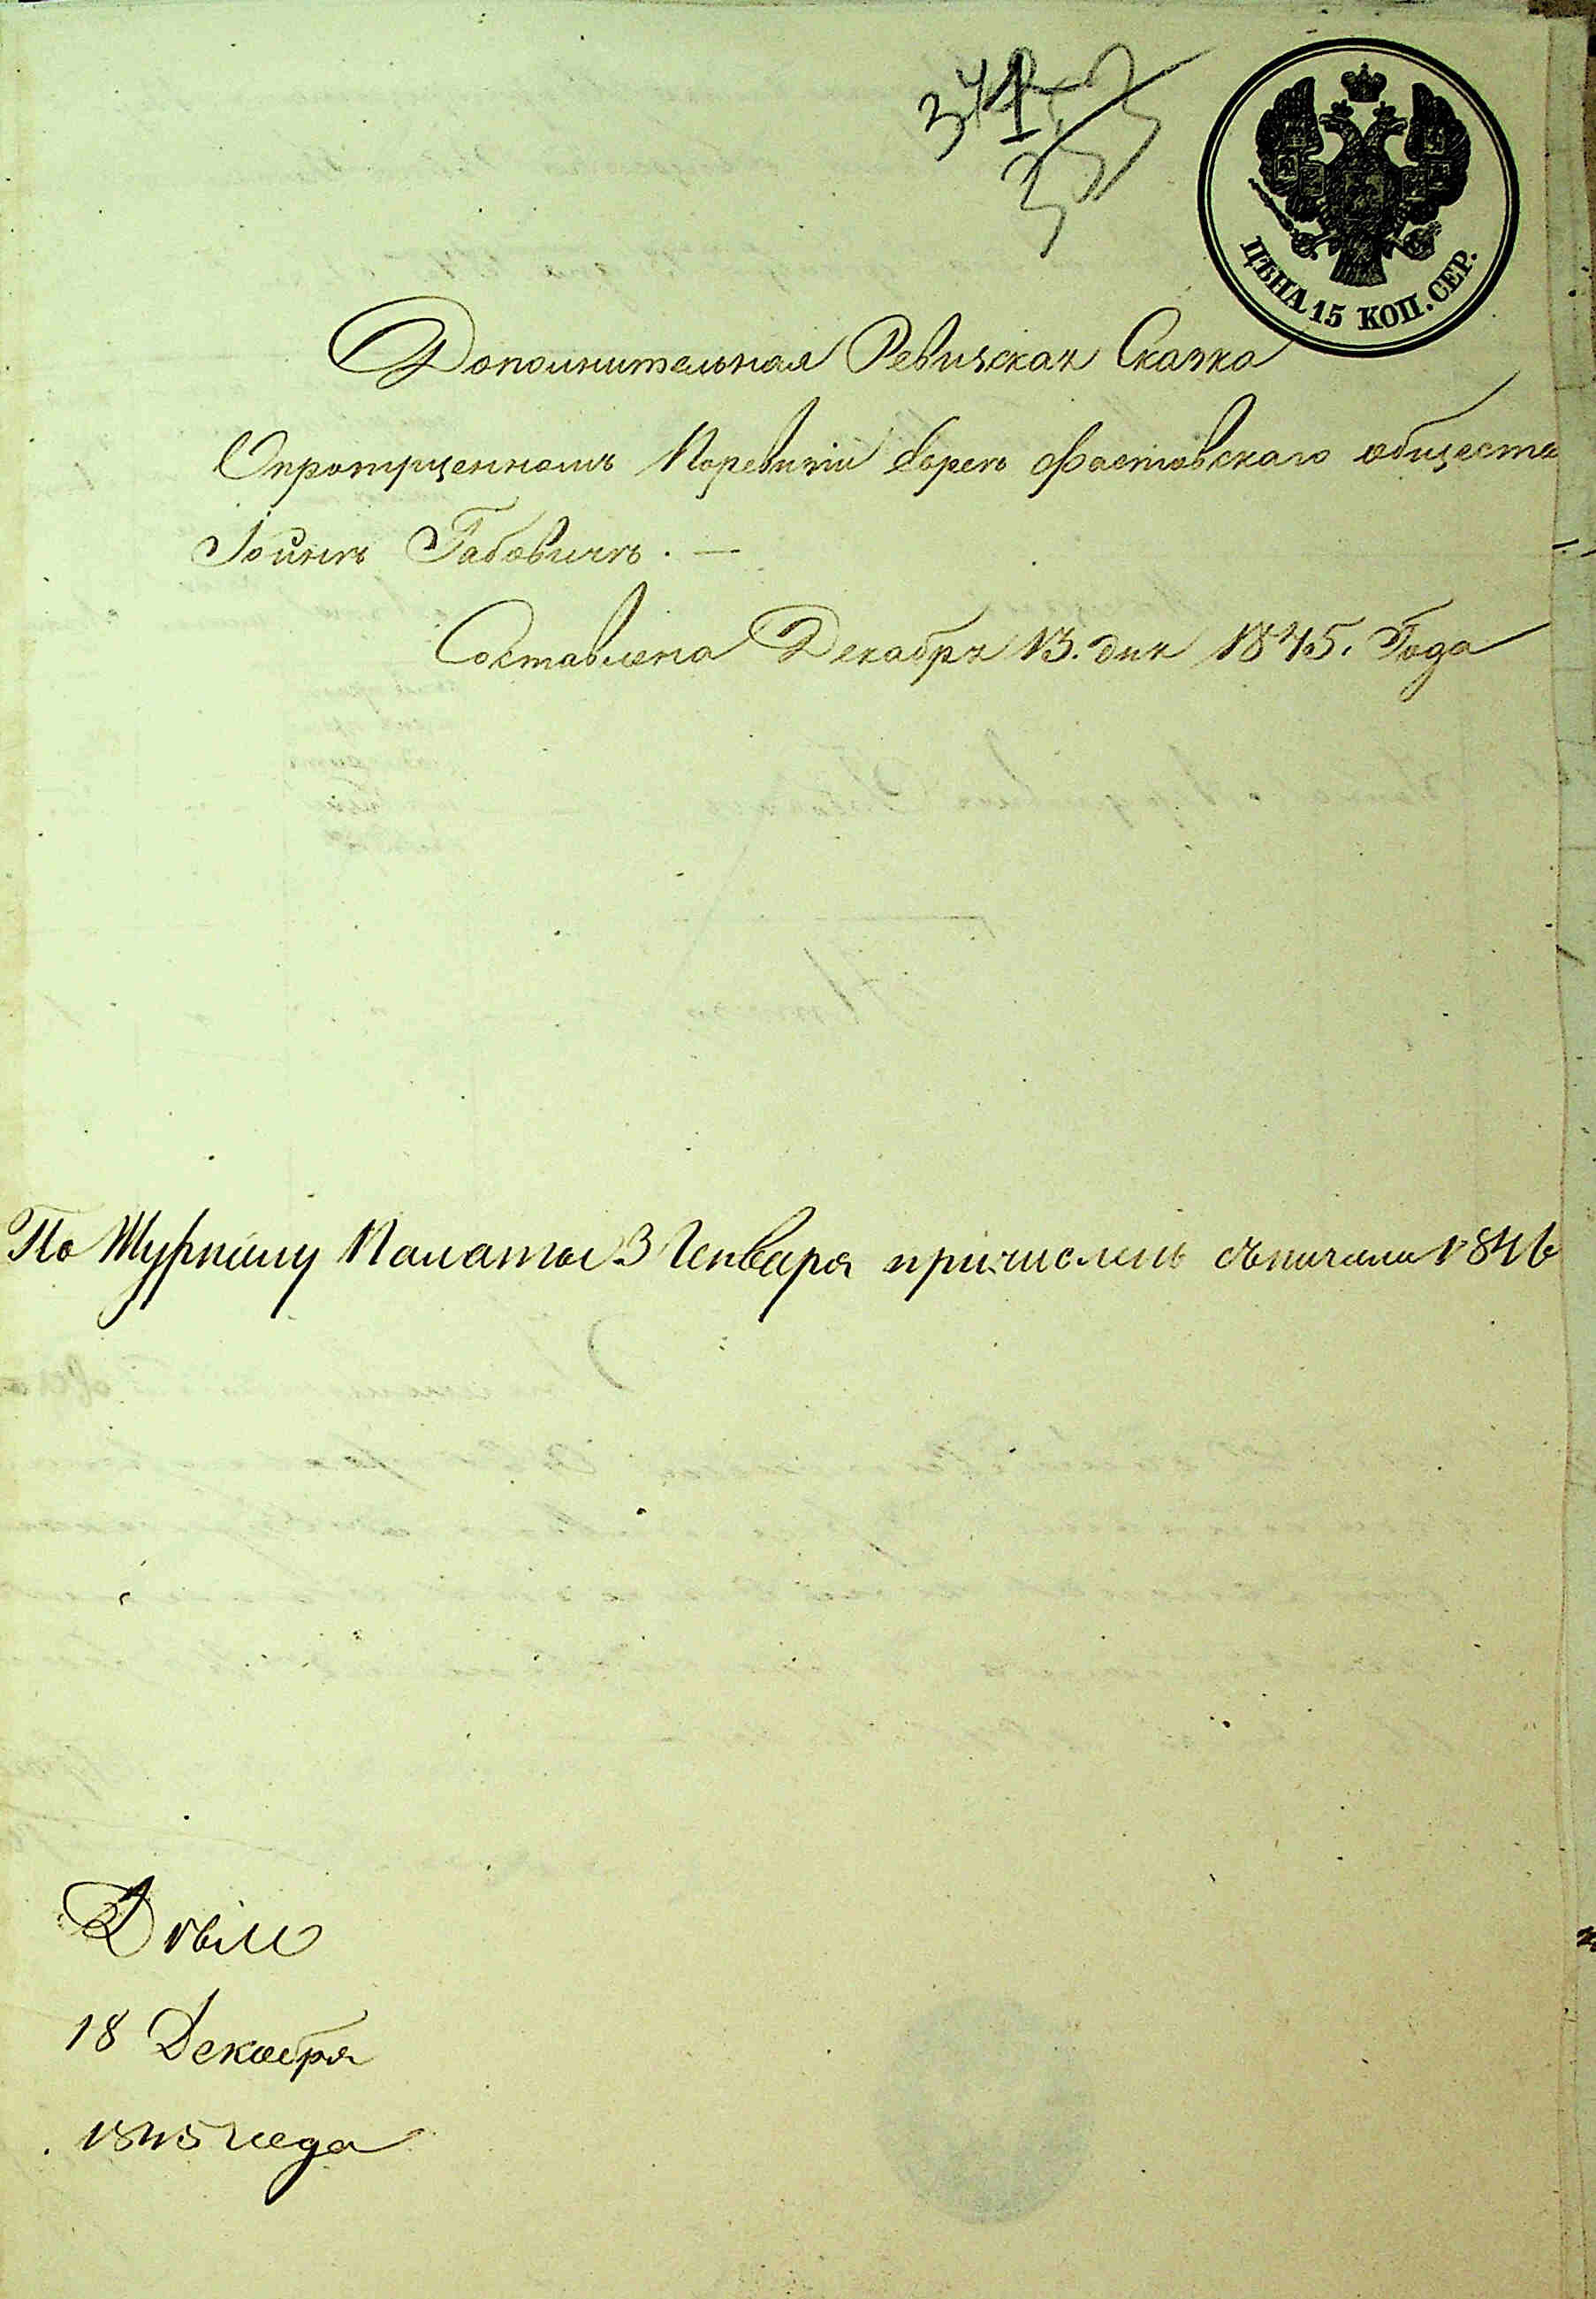 ЦѢНА 15 КОП. СЕР.
Дополнительная Ревизская Сказка
Опропущенномъ Поревизіи Евреѣ Фастовскаго общества
Іойнѣ Габовичѣ. —
Составлена Декабря 13. дня 1845. Года
По Журналу Палаты 3 Генваря причисленъ съначала 1846
18 Декабря
1845 года